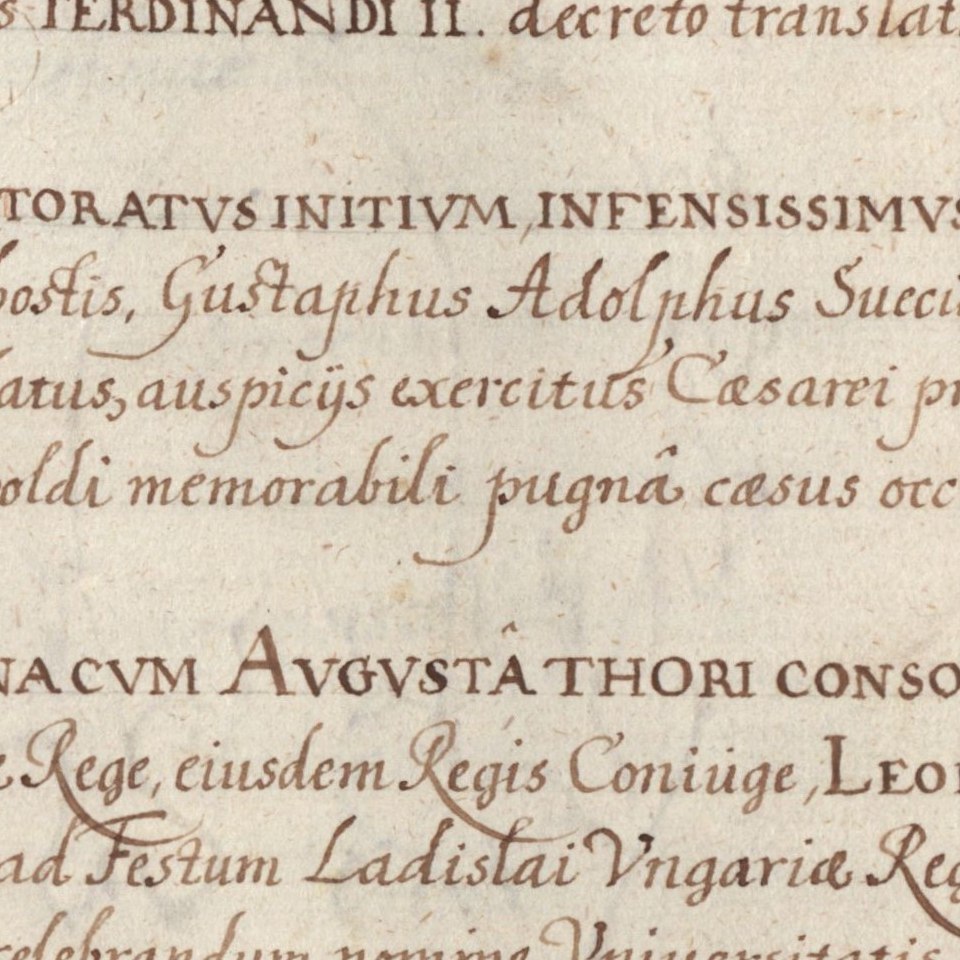 s FERDINANDI II. decreto translat
TORATVS INITIVM, INFENSISSIMVS
hostis, Gustaphus Adolphus Sueci
atus, auspicijs exercitus Cæsarei pr
oldi memorabili pugnâ cæsus occ
NACVM AVGVSTÂ THORI CONSO
e Rege, eiusdem Regis Coniuge, LEO
ad Festum Ladislai Vngariæ Reg
celebrandum nomine Vniversitatis